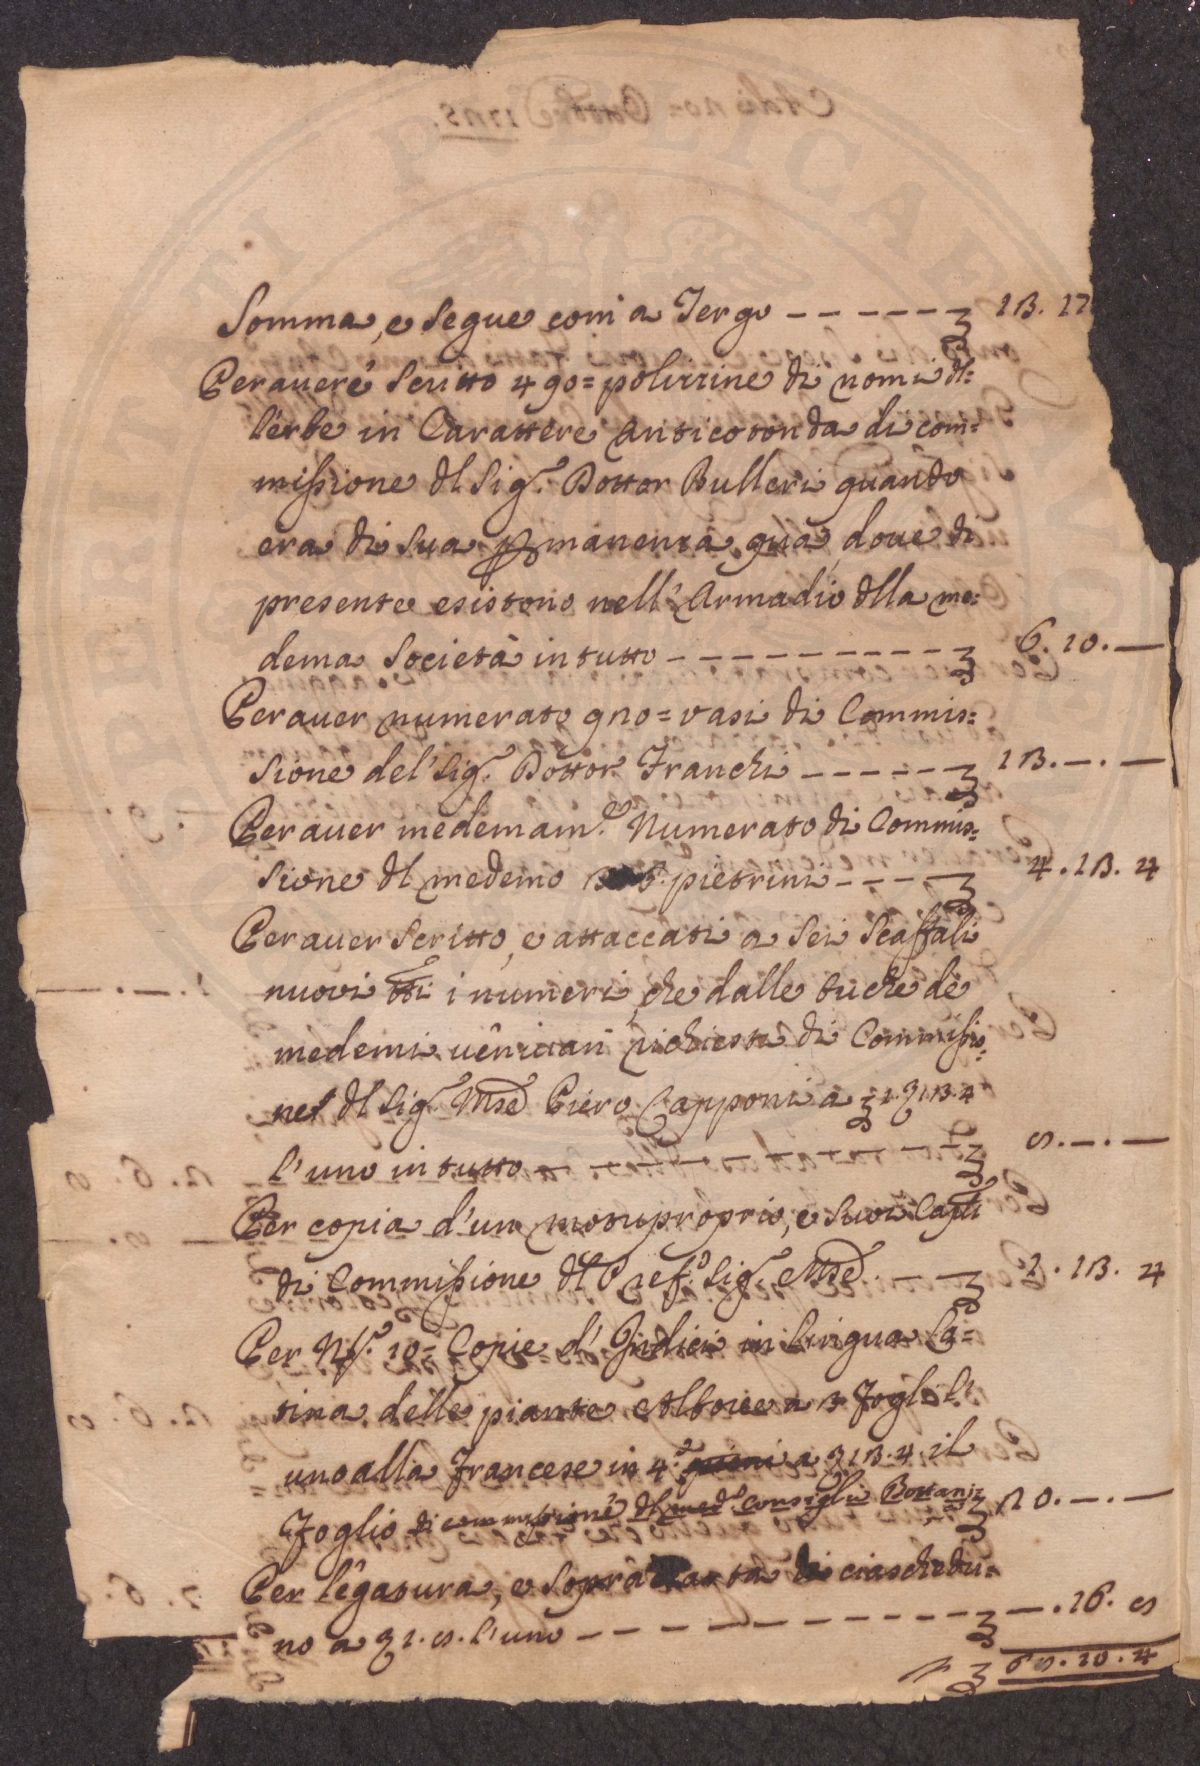 Somma, e segue com a Tergo ------ 13. 17
Per avere scritto 490= polizzine di nomi d'
l'erbe in Carattere Antico tonda di com=
missione dl Sig.r Dottor Bulleri quando
era di sua pmanenza qua, doue di
presente esistono nell' Armadio dlla me=
dema Società in tutto ---------- 6. 10. —
Per auer numerato 910= vasi di Commis=
sione del Sig.r Dottor Franchi ------ 13. —. —
Per auer medemam.e Numerato di Commis=
sione dl medemo pietrini ---- 4. 13. 4
Per auer scritto, e attaccati a sei scaffali
nuovi tti i numeri, che dalle buche de
medemi uenivan richiesti di Commissio=
ne dl Sig.r Mse Piero Capponi a 1. 13. 4
l'uno in tutto ------
Per copia d'un motuproprio, e suoi Capli
di Commissione dl Pref.o Sig.r Mse -- 1. 13. 4
Per No. 10= Copie d' Indici in Lingua La=
tina delle piante a 3 fogl. l'
uno alla francese in 4.o a 13. 4 il
foglio di commissione dl med.o Consiglio Bottani= 20. —. —
Per legatura, e sopra Carta di ciaschedu=
no a 1. l'uno ---------- —. 16.
10. 4